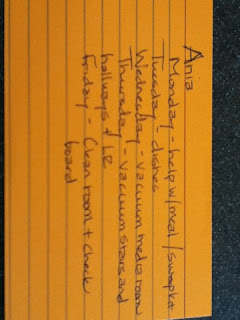 Ania
Monday - help w/meal/swap kit
Tuesday - dishes
Wednesday - vacuum media room
Thursday - vacuum stairs and
hallways + LR
Friday - Clean room + check
board